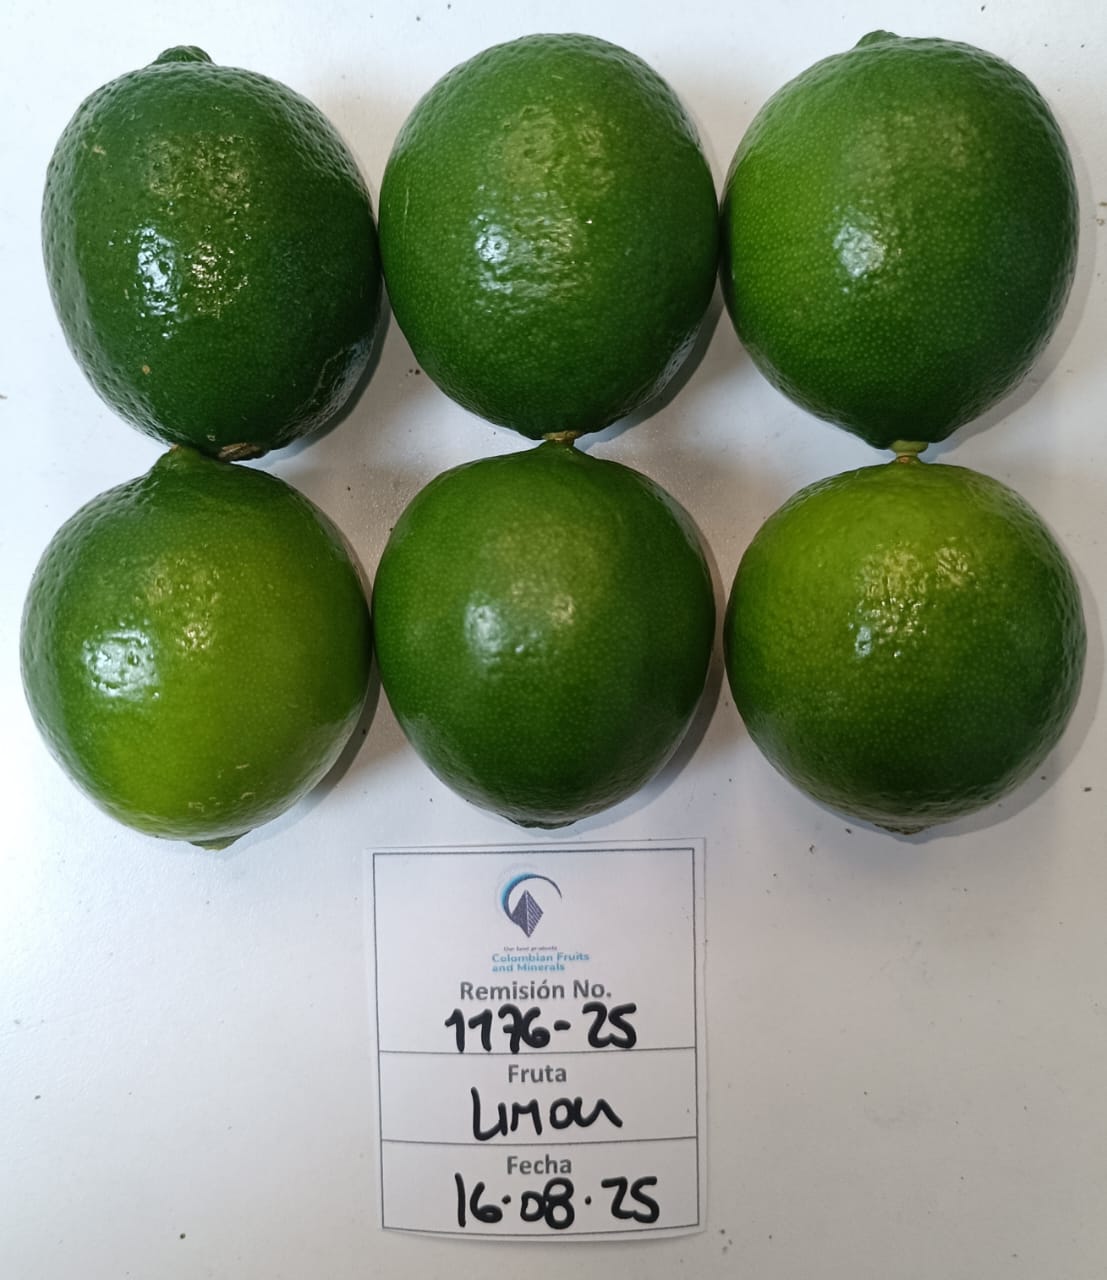 Our best products
Colombian Fruits
and Minerals
Remisión No.
1176-25
Fruta
LIMON
Fecha
16.08.25